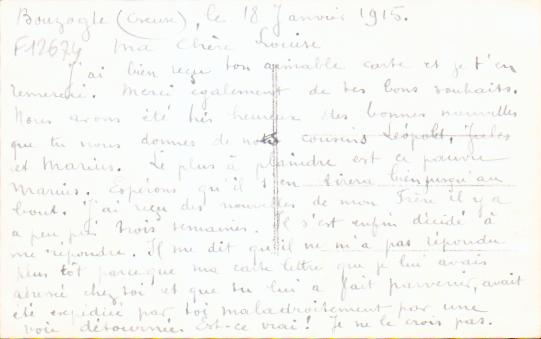 Bouzogle (Creuse), le 18 Janvier 1915.
F12674 Ma Chère Louise
J'ai bien reçu ton aimable carte et je t'en
remercie. Merci également de tes bons souhaits.
Nous avons été très heureux des bonnes nouvelles
que tu nous donnes de nos cousins Léopold, Jules
et Marius. Le plus à plaindre est ce pauvre
Marius. Espérons qu'il s'en tirera bien jusqu'au
bout. J'ai reçu des nouvelles de mon Frère il y a
a peu près trois semaines. Il s'est enfin décidé à
me répondre. Il me dit qu'il ne m'a pas répondu
plus tôt parce que ma carte lettre que je lui avais
adressé chez toi et que tu lui a fait parvenir, avait
été expédiée par toi maladroitement par une
voie détournée. Est-ce vrai! Je ne le crois pas.